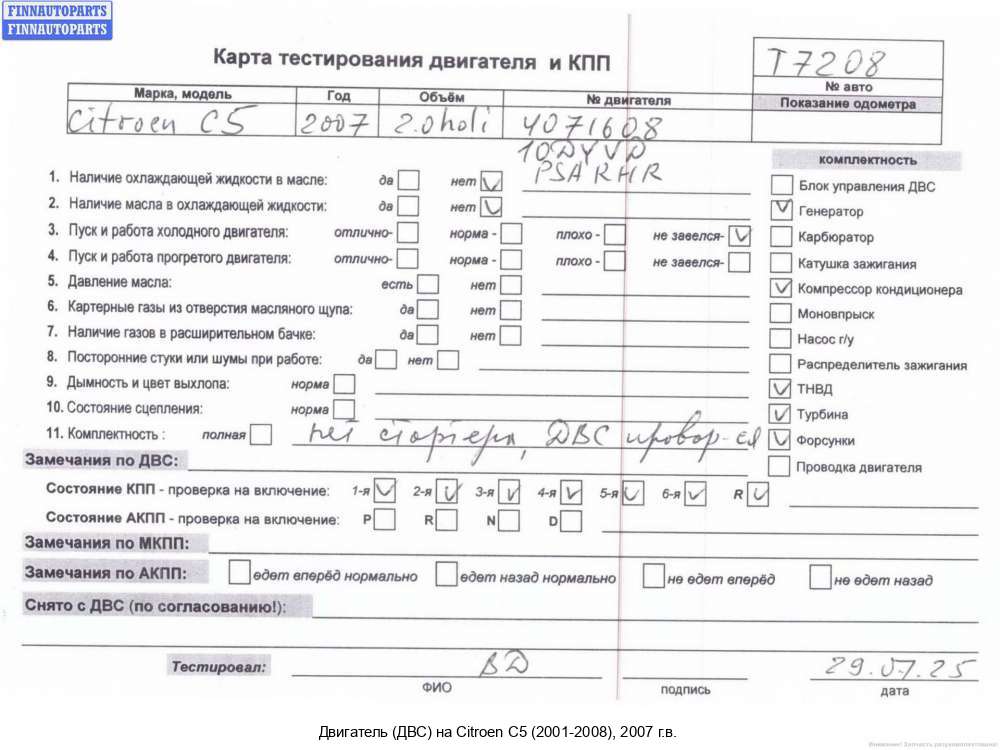 FINNAUTOPARTS
FINNAUTOPARTS
Карта тестирования двигателя и КПП
T7208
№ авто
Марка, модель Год Объём № двигателя Показание одометра
Citroen C5 2007 2.0hdi 4071608
10DYVD
PSA RHR
комплектность
1. Наличие охлаждающей жидкости в масле: да нет
Блок управления ДВС
2. Наличие масла в охлаждающей жидкости: да нет
Генератор
3. Пуск и работа холодного двигателя: отлично- норма - плохо - не завелся-
Карбюратор
4. Пуск и работа прогретого двигателя: отлично- норма - плохо - не завелся-
Катушка зажигания
5. Давление масла: есть нет
Компрессор кондиционера
6. Картерные газы из отверстия масляного щупа: да нет
Моновпрыск
7. Наличие газов в расширительном бачке: да нет
Насос г/у
8. Посторонние стуки или шумы при работе: да нет
Распределитель зажигания
9. Дымность и цвет выхлопа: норма
ТНВД
10. Состояние сцепления: норма
Турбина
11. Комплектность : полная нет стартера, ДВС провор-ся
Форсунки
Замечания по ДВС:
Проводка двигателя
Состояние КПП - проверка на включение: 1-я 2-я 3-я 4-я 5-я 6-я R
Состояние АКПП - проверка на включение: P R N D
Замечания по МКПП:
Замечания по АКПП: едет вперёд нормально едет назад нормально не едет вперёд не едет назад
Снято с ДВС (по согласованию!):
Тестировал: ВД 29.07.25
ФИО подпись дата
Двигатель (ДВС) на Citroen C5 (2001-2008), 2007 г.в.
Внимание! Запчасть разукомплектована!